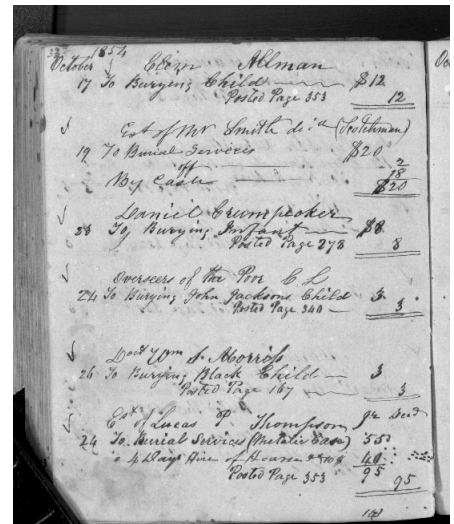 1854
October Elim Allman
17 To Burying Child $12
Posted Page 353 12
Est of Mr Smith decd (Scotchman)
19 To Burial Services $20
off 2
By Cash 18
$20
Daniel Crumpecker
23 To Burying Infant $8
Posted Page 278 8
Overseers of the Poor C L
24 To Burying John Jacksons Child 3
Posted Page 340 3
Doct Wm S. Morris
26 To Burying Black Child 3
Posted Page 167 3
Est of Lucas P Thompson Jr Decd
24 To Burial Services (Metalic Case) 55
4 Days Hire of Hearse 40
Posted Page 353 95 95